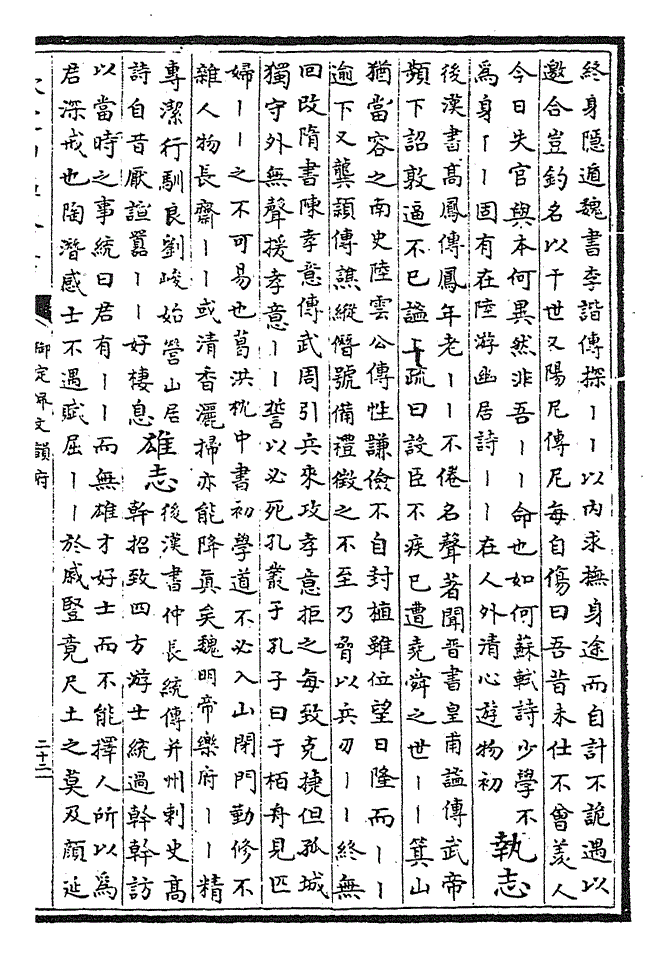 終身隱遁魏書李諧傳探丨丨以內求撫身途而自計不詭遇以
邀合豈釣名以干世又陽尼傳尼每自傷曰吾昔未仕不曾羨人
今日失官與本何異然非吾丨丨命也如何蘇軾詩少學不
為身丨丨固有在陸游幽居詩丨丨在人外清心遊物初
執志
後漢書高鳳傳鳳年老丨丨不倦名聲著聞晉書皇甫謐傳武帝
頻下詔敦逼不已謐上疏曰設臣不疾已遭堯舜之世丨丨箕山
猶當容之南史陸雲公傳性謙儉不自封植雖位望日隆而丨丨
逾下又龔頴傳譙縱僭號備禮徵之不至乃脅以兵刃丨丨終無
回改隋書陳孝意傳武周引兵來攻孝意拒之每致克捷但孤城
獨守外無聲援孝意丨丨誓以必死孔叢子孔子曰于栢舟見匹
婦丨丨之不可易也葛洪枕中書初學道不必入山閉門勤修不
雜人物長齋丨丨或清香灑掃亦能降眞矣魏明帝樂府丨丨精
專潔行馴良劉峻始營山居
詩自昔厭諠囂丨丨好棲息
雄志
後漢書仲長統傳并州刺史高
幹招致四方游士統過幹幹訪
以當時之事統曰君有丨丨而無雄才好士而不能擇人所以為
君深戒也陶潛感士不遇賦屈丨丨於戚豎竟尺土之莫及顏延
御定佩文韻府
二十二